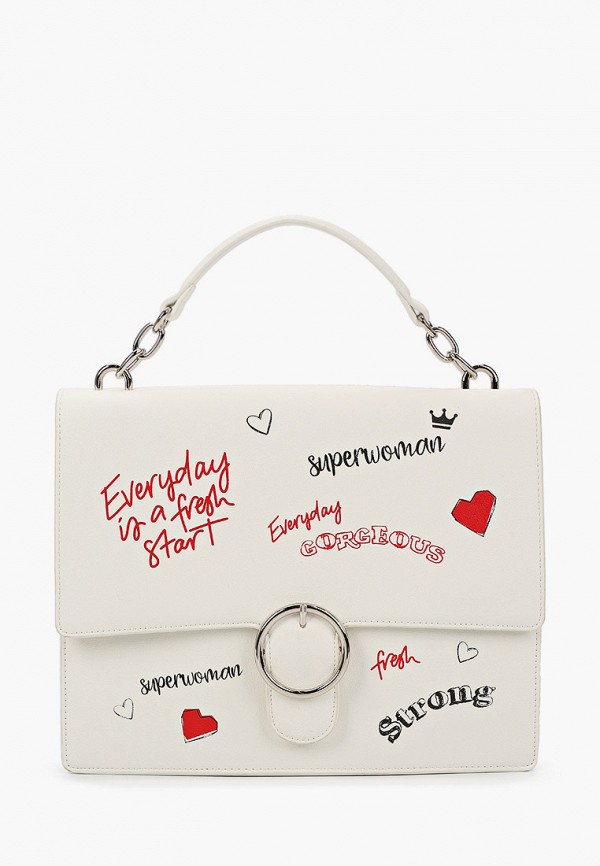 superwoman
Everyday
is a fresh
start
Everyday
GORGEOUS
superwoman
fresh
Strong